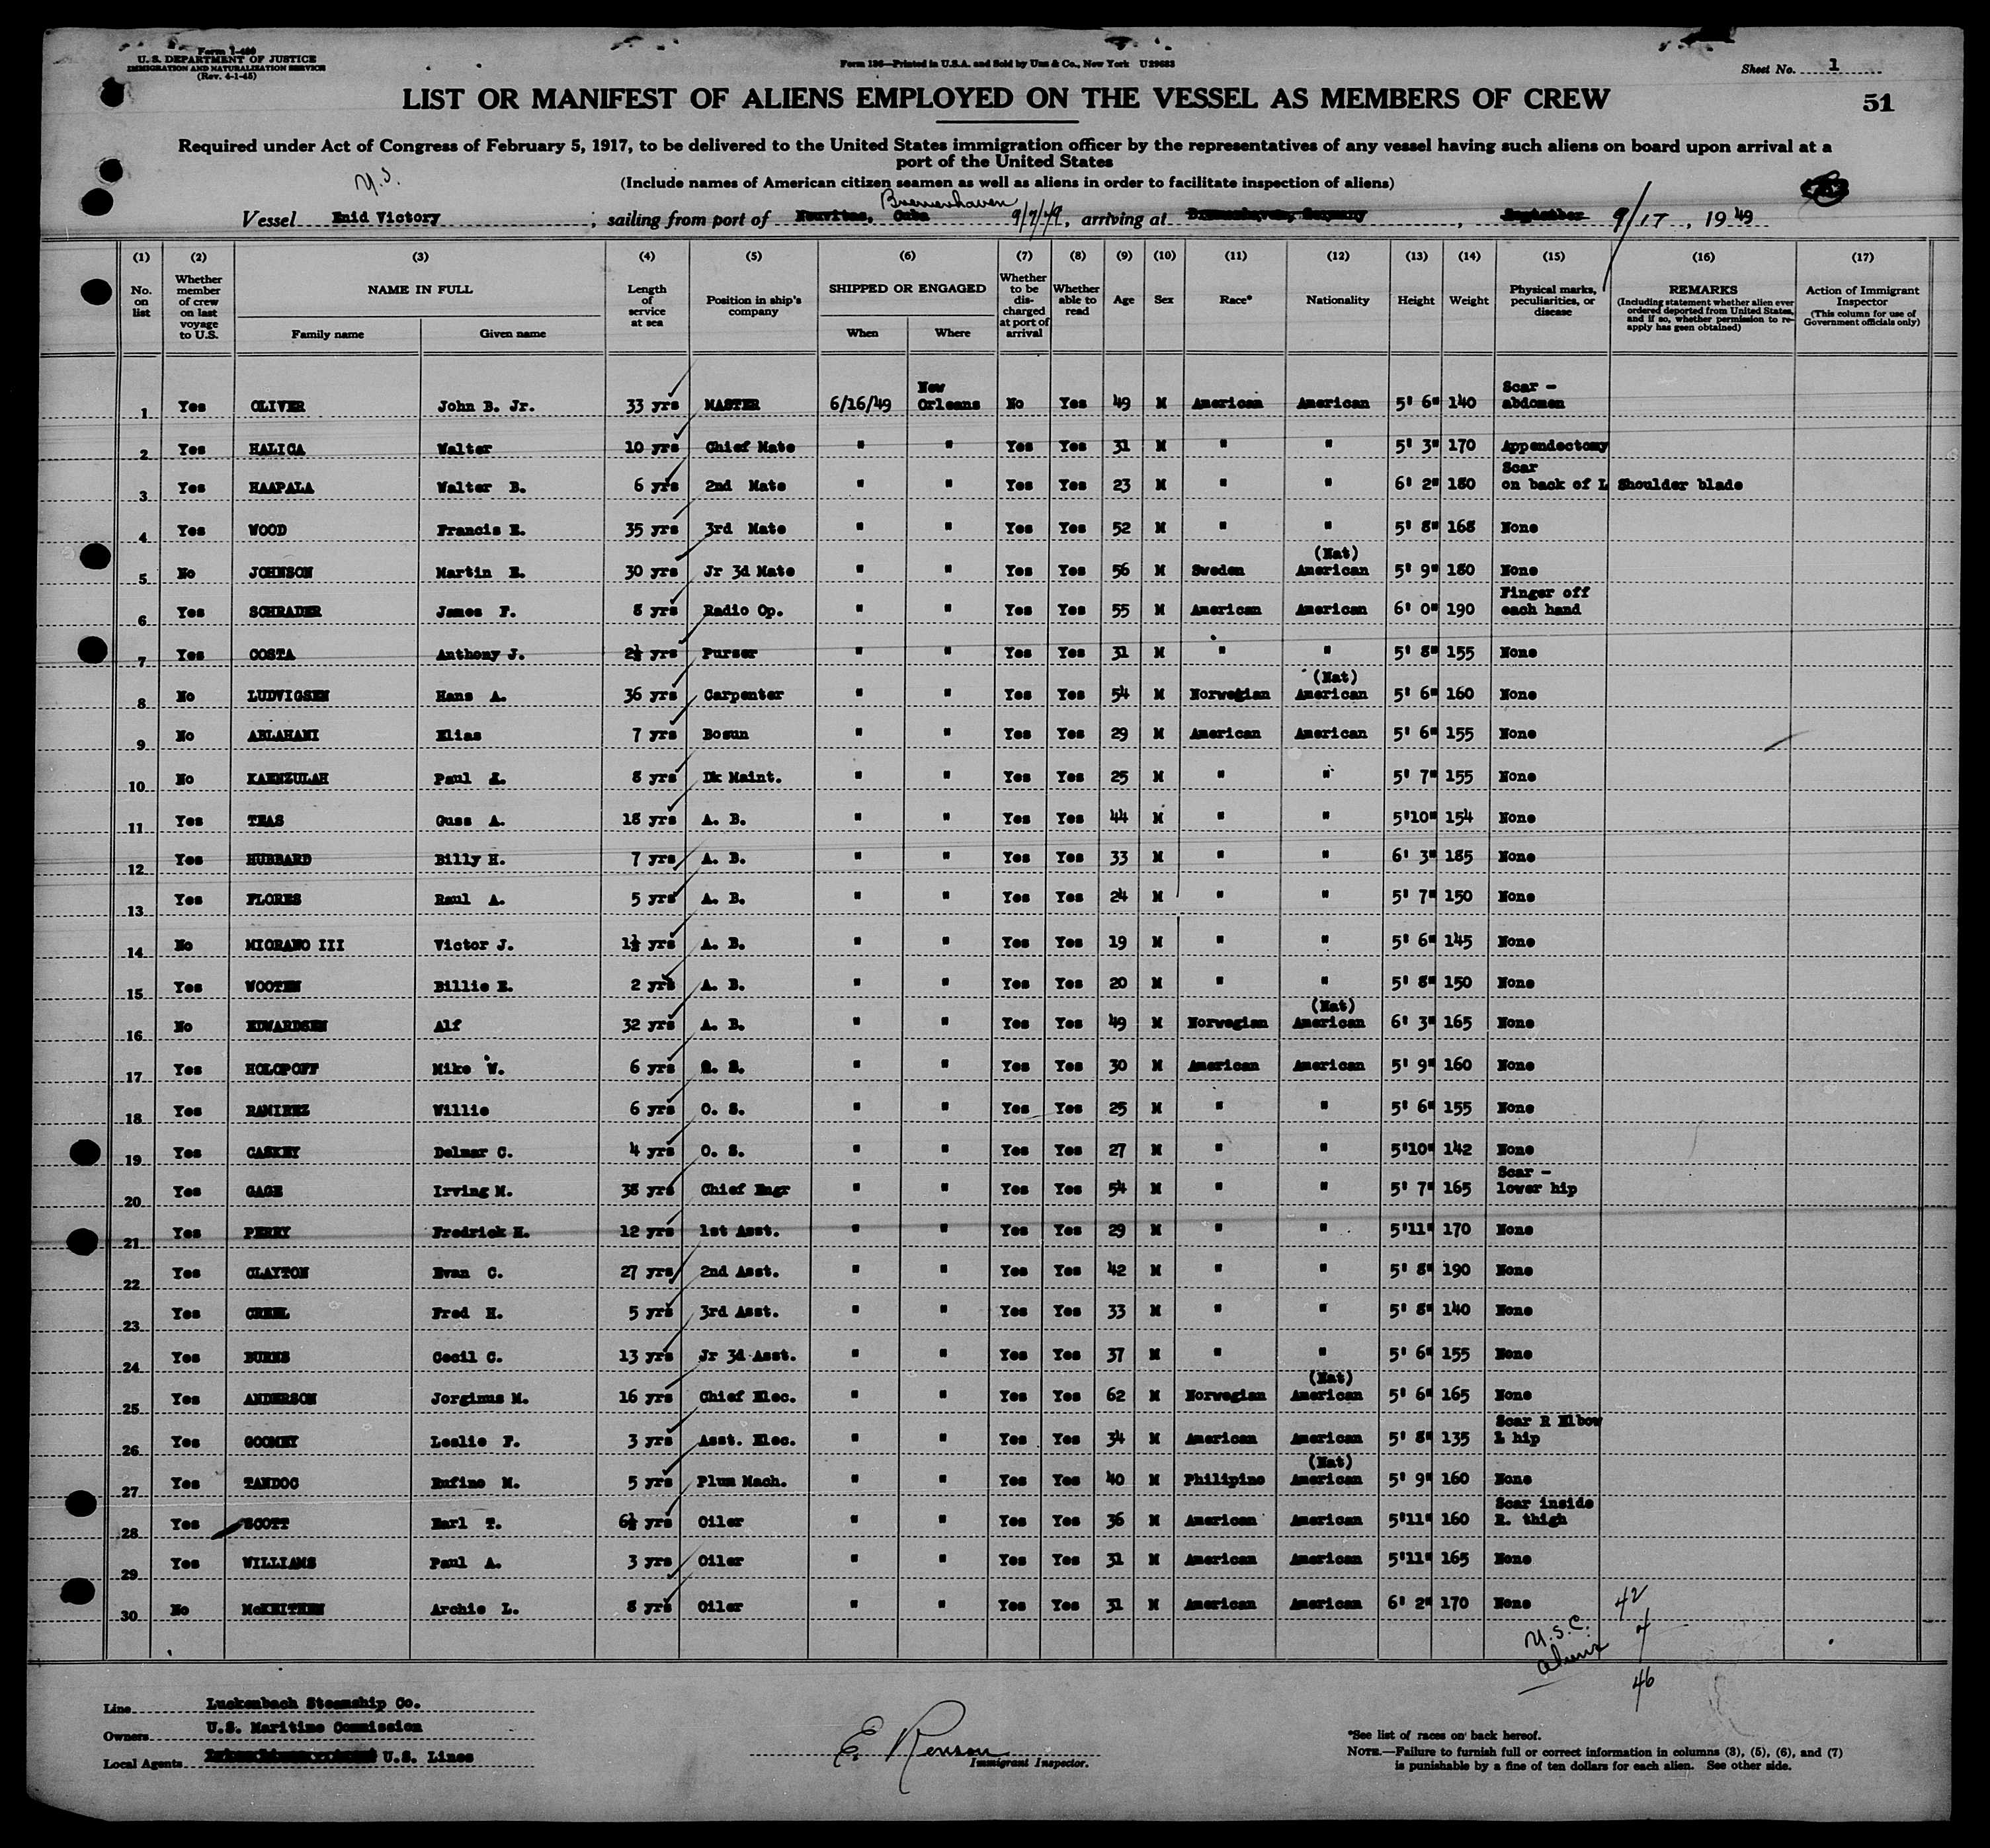 Form I-480
U. S. DEPARTMENT OF JUSTICE
IMMIGRATION AND NATURALIZATION SERVICE
(Rev. 4-1-45)
Form 136—Printed in U.S.A. and Sold by Unz & Co., New York U29683
Sheet No. 1
LIST OR MANIFEST OF ALIENS EMPLOYED ON THE VESSEL AS MEMBERS OF CREW
51
Required under Act of Congress of February 5, 1917, to be delivered to the United States immigration officer by the representatives of any vessel having such aliens on board upon arrival at a
port of the United States
(Include names of American citizen seamen as well as aliens in order to facilitate inspection of aliens)
U.S.
Bremerhaven
Vessel Enid Victory ; sailing from port of Nuevitas, Cuba 9/7/49, arriving at Bremerhaven, Germany, September 9/17, 1949
(1) (2) (3) (4) (5) (6) (7) (8) (9) (10) (11) (12) (13) (14) (15) (16) (17)
No. on list
Whether member of crew on last voyage to U.S.
NAME IN FULL
Family name Given name
Length of service at sea
Position in ship's company
SHIPPED OR ENGAGED
When Where
Whether to be discharged at port of arrival
Whether able to read
Age
Sex
Race*
Nationality
Height
Weight
Physical marks, peculiarities, or disease
REMARKS
(Including statement whether alien ever ordered deported from United States, and if so, whether permission to reapply has been obtained)
Action of Immigrant Inspector
(This column for use of Government officials only)
1 Yes OLIVER John B. Jr. 33 yrs MASTER 6/16/49 New Orleans No Yes 49 M American American 5' 6" 140 Scar - abdomen
2 Yes HALICA Walter 10 yrs Chief Mate " " Yes Yes 31 M " " 5' 3" 170 Appendectomy
3 Yes HAAPALA Walter B. 6 yrs 2nd Mate " " Yes Yes 23 M " " 6' 2" 180 Scar on back of L Shoulder blade
4 Yes WOOD Francis E. 35 yrs 3rd Mate " " Yes Yes 52 M " " 5' 8" 168 None
5 No JOHNSON Martin E. 30 yrs Jr 3d Mate " " Yes Yes 56 M Sweden (Nat) American 5' 9" 180 None
6 Yes SCHRADER James F. 8 yrs Radio Op. " " Yes Yes 55 M American American 6' 0" 190 Finger off each hand
7 Yes COSTA Anthony J. 2½ yrs Purser " " Yes Yes 31 M " " 5' 8" 155 None
8 No LUDVIGSEN Hans A. 36 yrs Carpenter " " Yes Yes 54 M Norwegian (Nat) American 5' 6" 160 None
9 No ABLAHANI Elias 7 yrs Bosun " " Yes Yes 29 M American American 5' 6" 155 None
10 No KAEMZULAH Paul K. 8 yrs Dk Maint. " " Yes Yes 25 M " " 5' 7" 155 None
11 Yes TEAS Guss A. 18 yrs A. B. " " Yes Yes 44 M " " 5'10" 154 None
12 Yes HUBBARD Billy H. 7 yrs A. B. " " Yes Yes 33 M " " 6' 3" 185 None
13 Yes FLORES Raul A. 5 yrs A. B. " " Yes Yes 24 M " " 5' 7" 150 None
14 No MIORANO III Victor J. 1½ yrs A. B. " " Yes Yes 19 M " " 5' 6" 145 None
15 Yes WOOTEN Billie E. 2 yrs A. B. " " Yes Yes 20 M " " 5' 8" 150 None
16 No EDWARDSEN Alf 32 yrs A. B. " " Yes Yes 49 M Norwegian (Nat) American 6' 3" 165 None
17 Yes HOLOPOFF Mike W. 6 yrs O. S. " " Yes Yes 30 M American American 5' 9" 160 None
18 Yes RAMIREZ Willie 6 yrs O. S. " " Yes Yes 25 M " " 5' 6" 155 None
19 Yes CASKEY Delmar C. 4 yrs O. S. " " Yes Yes 27 M " " 5'10" 142 None
20 Yes GAGE Irving M. 38 yrs Chief Engr " " Yes Yes 54 M " " 5' 7" 165 Scar - lower hip
21 Yes PERRY Fredrick H. 12 yrs 1st Asst. " " Yes Yes 29 M " " 5'11" 170 None
22 Yes CLAYTON Evan C. 27 yrs 2nd Asst. " " Yes Yes 42 M " " 5' 8" 190 None
23 Yes CREEL Fred H. 5 yrs 3rd Asst. " " Yes Yes 33 M " " 5' 8" 140 None
24 Yes BURNS Cecil C. 13 yrs Jr 3d Asst. " " Yes Yes 37 M " " 5' 6" 155 None
25 Yes ANDERSON Jorginus M. 16 yrs Chief Elec. " " Yes Yes 62 M Norwegian (Nat) American 5' 6" 165 None
26 Yes GOOMEY Leslie F. 3 yrs Asst. Elec. " " Yes Yes 34 M American American 5' 8" 135 Scar R Elbow L hip
27 Yes TANDOC Rufino M. 5 yrs Plum Mach. " " Yes Yes 40 M Philipino (Nat) American 5' 9" 160 None
28 Yes SCOTT Earl T. 6½ yrs Oiler " " Yes Yes 36 M American American 5'11" 160 Scar inside R. thigh
29 Yes WILLIAMS Paul A. 3 yrs Oiler " " Yes Yes 31 M American American 5'11" 165 None
30 No McKEITHEN Archie L. 8 yrs Oiler " " Yes Yes 31 M American American 6' 2" 170 None
U.S.C. 42
Aliens 4
46
Line Luckenbach Steamship Co.
Owners U.S. Maritime Commission
Local Agents U.S. Lines
E. Renson
Immigrant Inspector.
*See list of races on back hereof.
NOTE.—Failure to furnish full or correct information in columns (3), (5), (6), and (7)
is punishable by a fine of ten dollars for each alien. See other side.